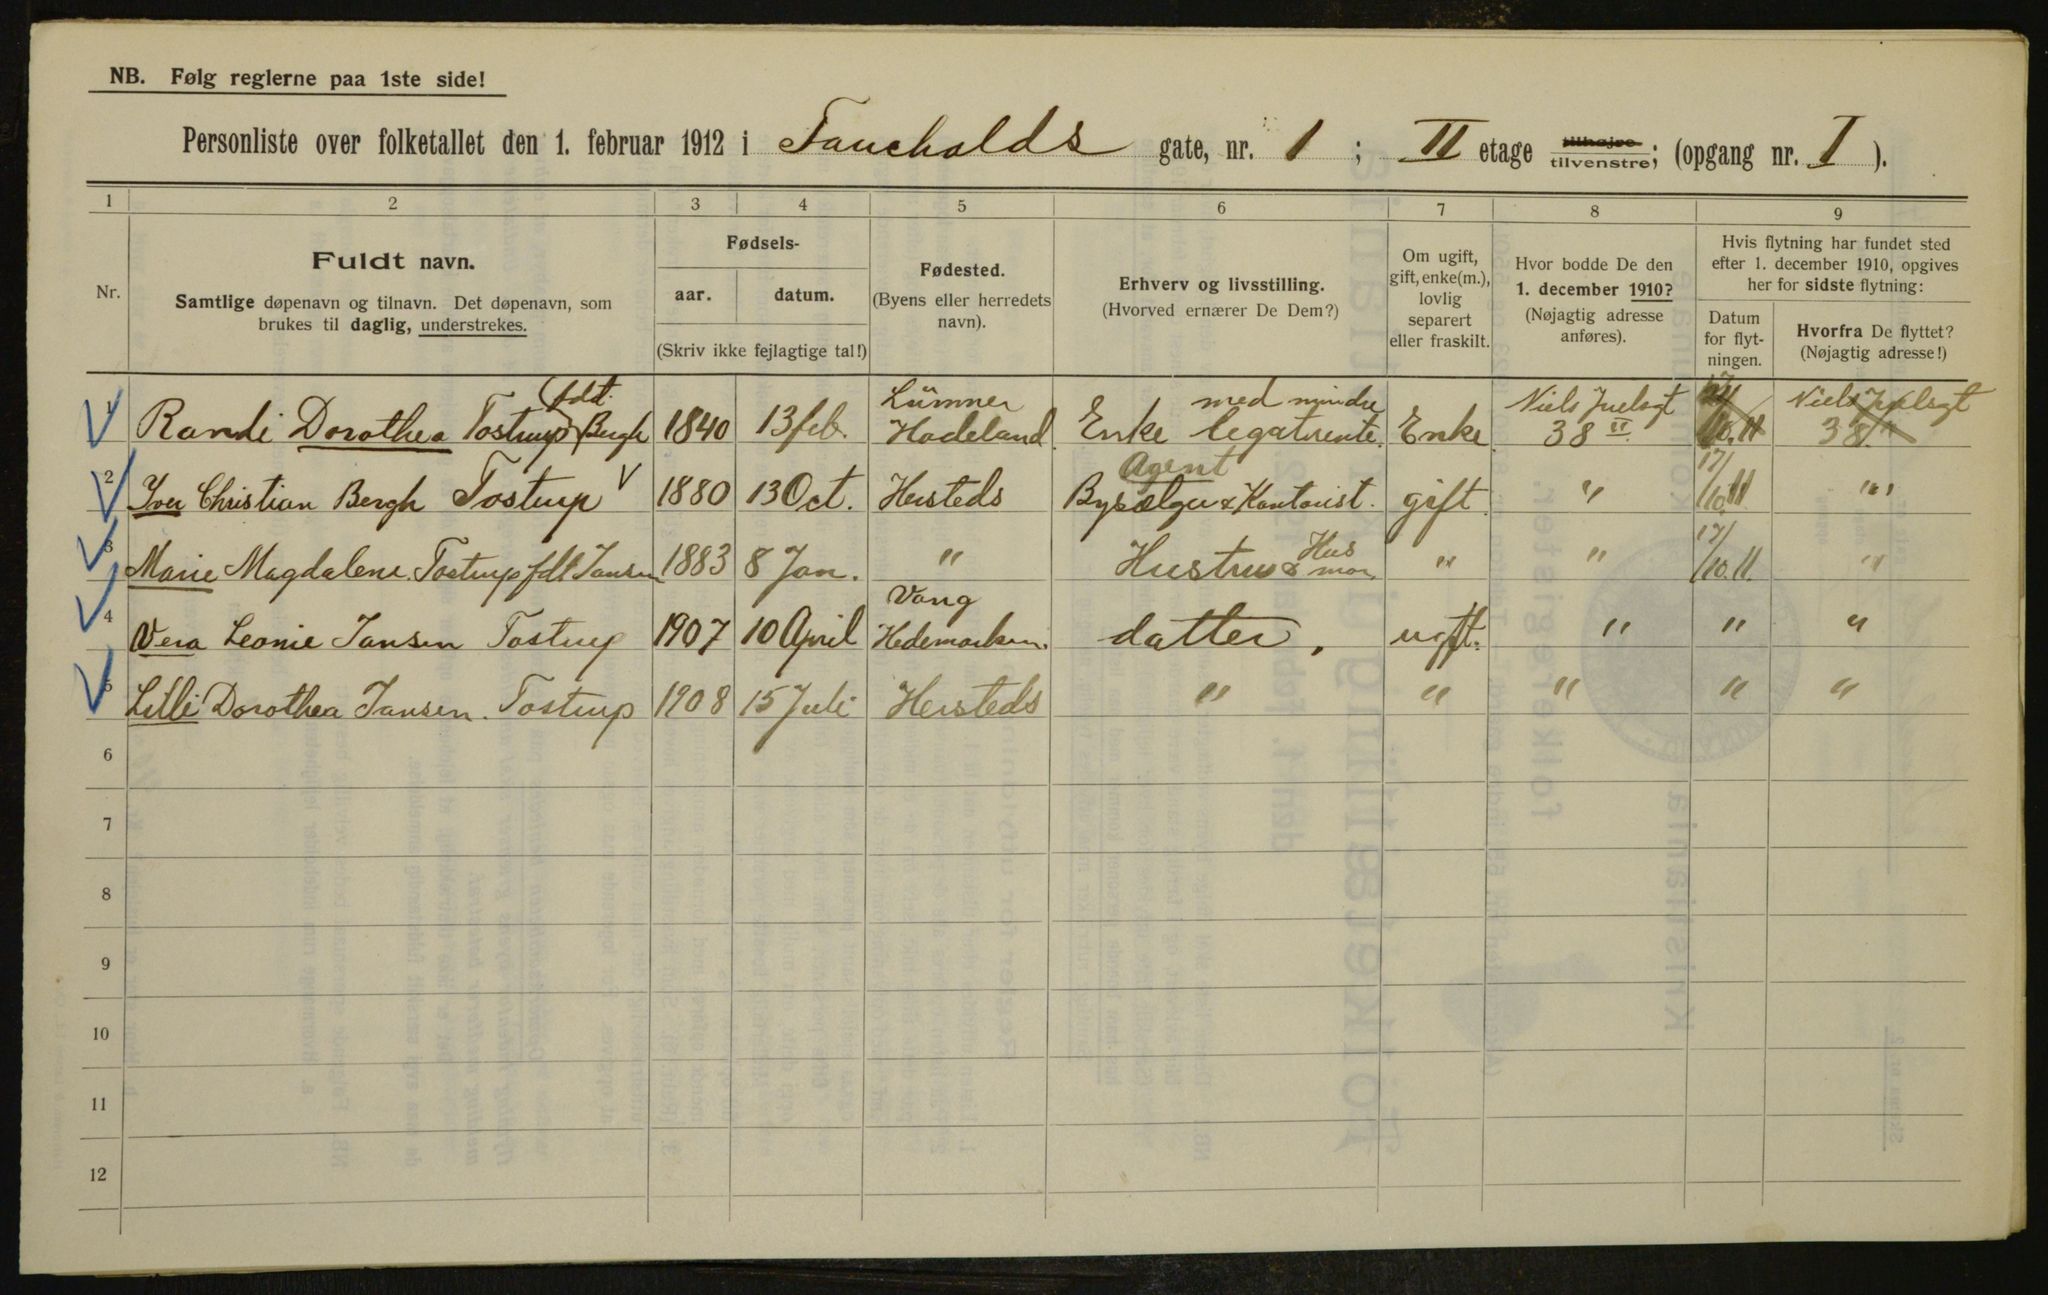 NB. Følg reglerne paa 1ste side!
Personliste over folketallet den 1. februar 1912 i Faucholds gate, nr. 1 ; II etage tilhøjre tilvenstre; (opgang nr. I ).
1 2 3 4 5 6 7 8 9
Nr.
Fuldt navn.
Samtlige døpenavn og tilnavn. Det døpenavn, som
brukes til daglig, understrekes.
Fødsels-
aar. datum.
(Skriv ikke fejlagtige tal!)
Fødested.
(Byens eller herredets
navn).
Erhverv og livsstilling.
(Hvorved ernærer De Dem?)
Om ugift,
gift, enke(m.),
lovlig
separert
eller fraskilt.
Hvor bodde De den
1. december 1910?
(Nøjagtig adresse
anføres).
Hvis flytning har fundet sted
efter 1. december 1910, opgives
her for sidste flytning:
Datum
for flyt-
ningen.
Hvorfra De flyttet?
(Nøjagtig adresse!)
1 Randi Dorothea Tostrup fdt. Bergh 1840 13 feb. Lünner Hadeland Enke med mindre legatrente. Enke Niels Juelsgt 38 II 17/10.11 Niels Juelsgt 38 "
2 Iver Christian Bergh Tostrup 1880 13 Oct. Hersteds Agent Bysælger & Kontorist. gift " 17/10.11 " "
3 Marie Magdalene Tostrup fdt Jansen 1883 8 Jan. " Hustru & Hus mor " " 17/10.11. "
4 Vera Leonie Jansen Tostrup 1907 10 April Vang Hedemarken. datter, ugft. " " "
5 Lilli Dorothea Jansen. Tostrup 1908 15 Juli Hersteds " " " " "
6
7
8
9
10
11
12